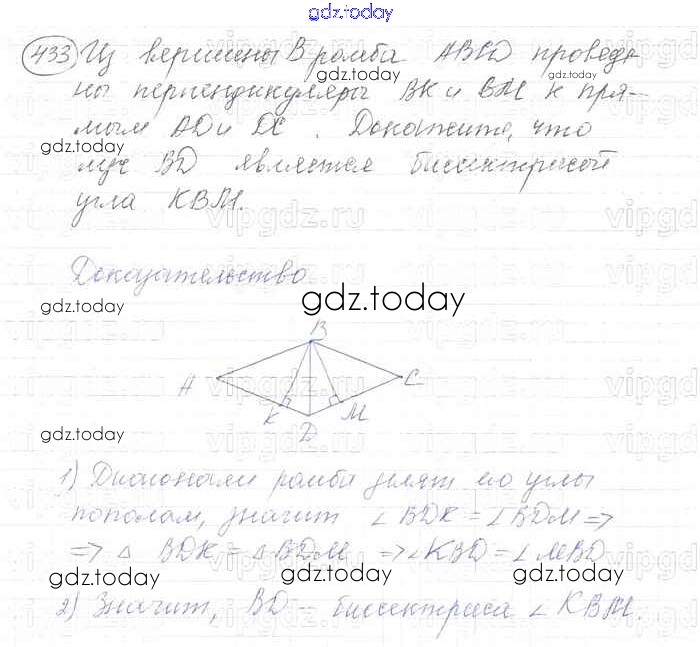 gdz.today
433 Из вершины В ромба ABCD проведе-
gdz.today
ны перпендикуляры BK и BM к пря-
мым AD и DC. Докажите, что
gdz.today
луч BD является биссектрисой
угла KBM.
vipgdz.ru
Доказательство
gdz.today
gdz.today
B
A
C
K
M
D
gdz.today
1) Диагонали ромба делят его углы
пополам, значит ∠BDK = ∠BDM =>
=> △ BDK = △ BDM => ∠KBD = ∠MBD
gdz.today gdz.today gdz.today
2) Значит, BD – биссектриса ∠KBM.